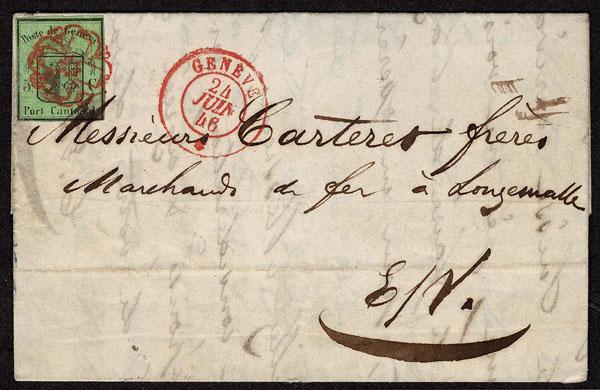 Poste de Genève
5
Port Cantonal
GENÈVE
24
JUIN
46
Messieurs Carteret frères
Marchands de fer à Longemalle
E/V.